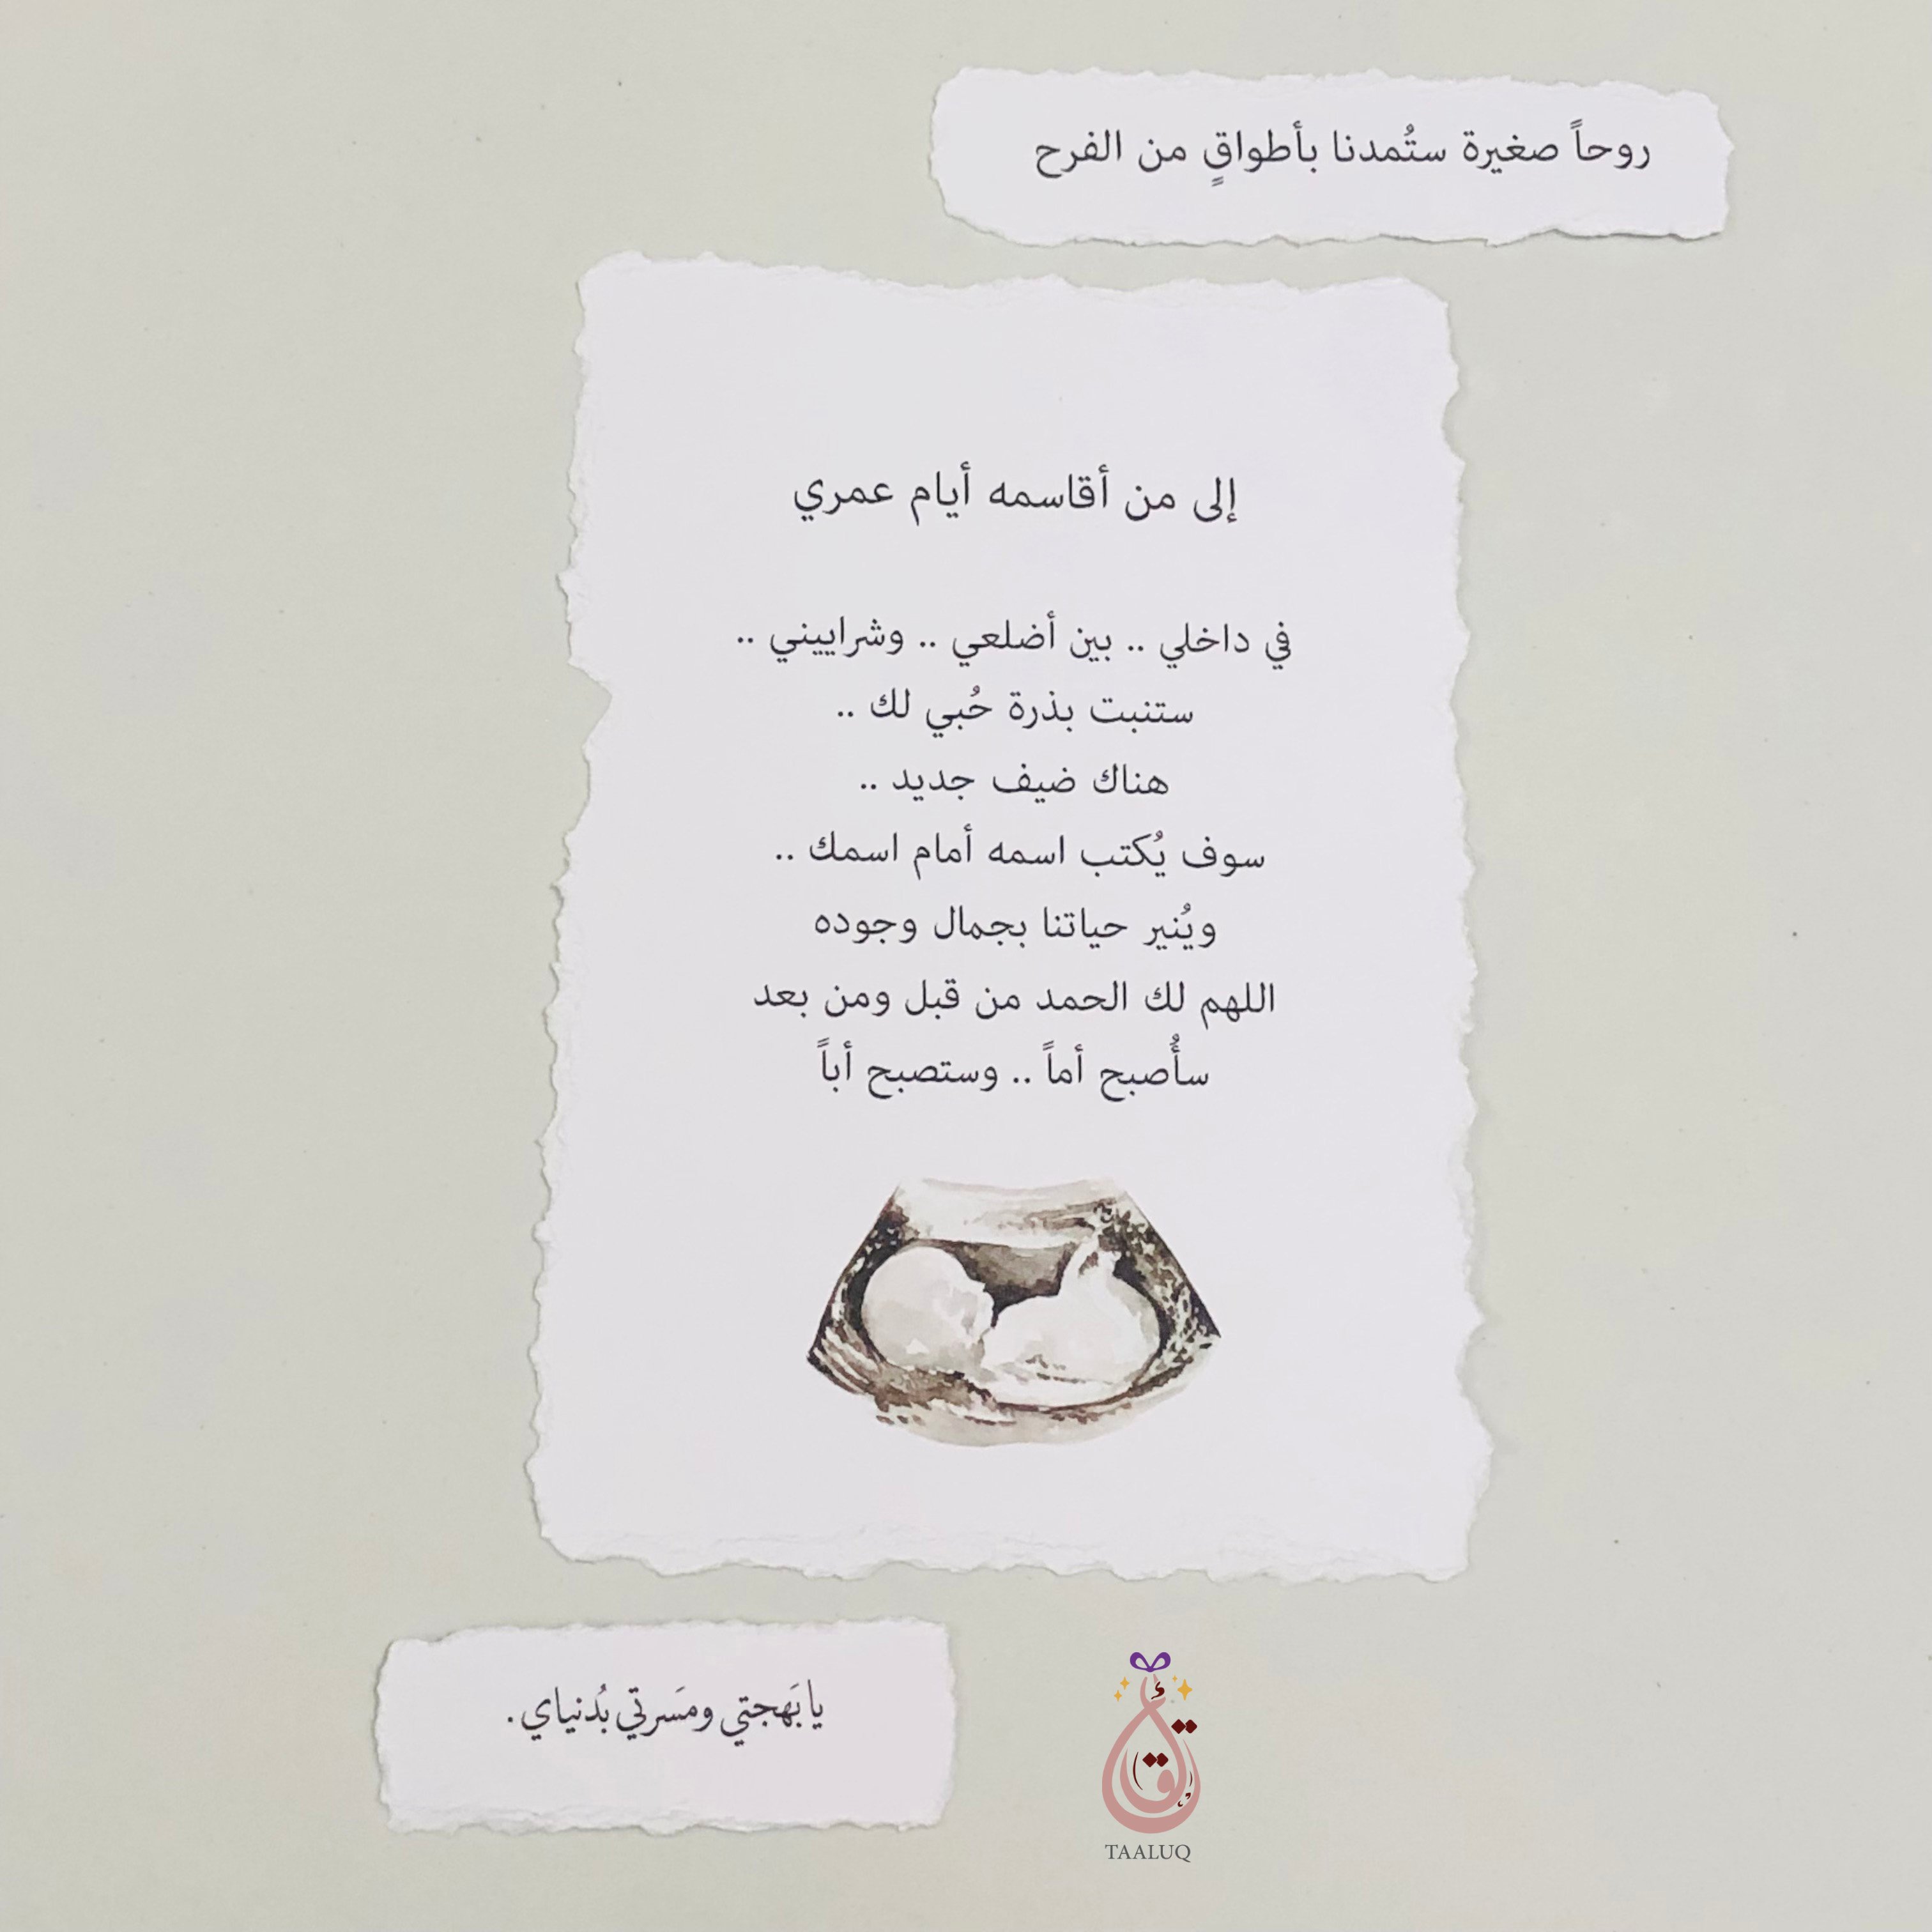 روحاً صغيرة ستُمدنا بأطواقٍ من الفرح
إلى من أقاسمه أيام عمري
في داخلي .. بين أضلعي .. وشراييني ..
ستنبت بذرة حُبي لك ..
هناك ضيف جديد ..
سوف يُكتب اسمه أمام اسمك ..
ويُنير حياتنا بجمال وجوده
اللهم لك الحمد من قبل ومن بعد
سأُصبح أماً .. وستصبح أباً
يا بَهجتي ومَسرتي بُدنياي.
TAALUQ